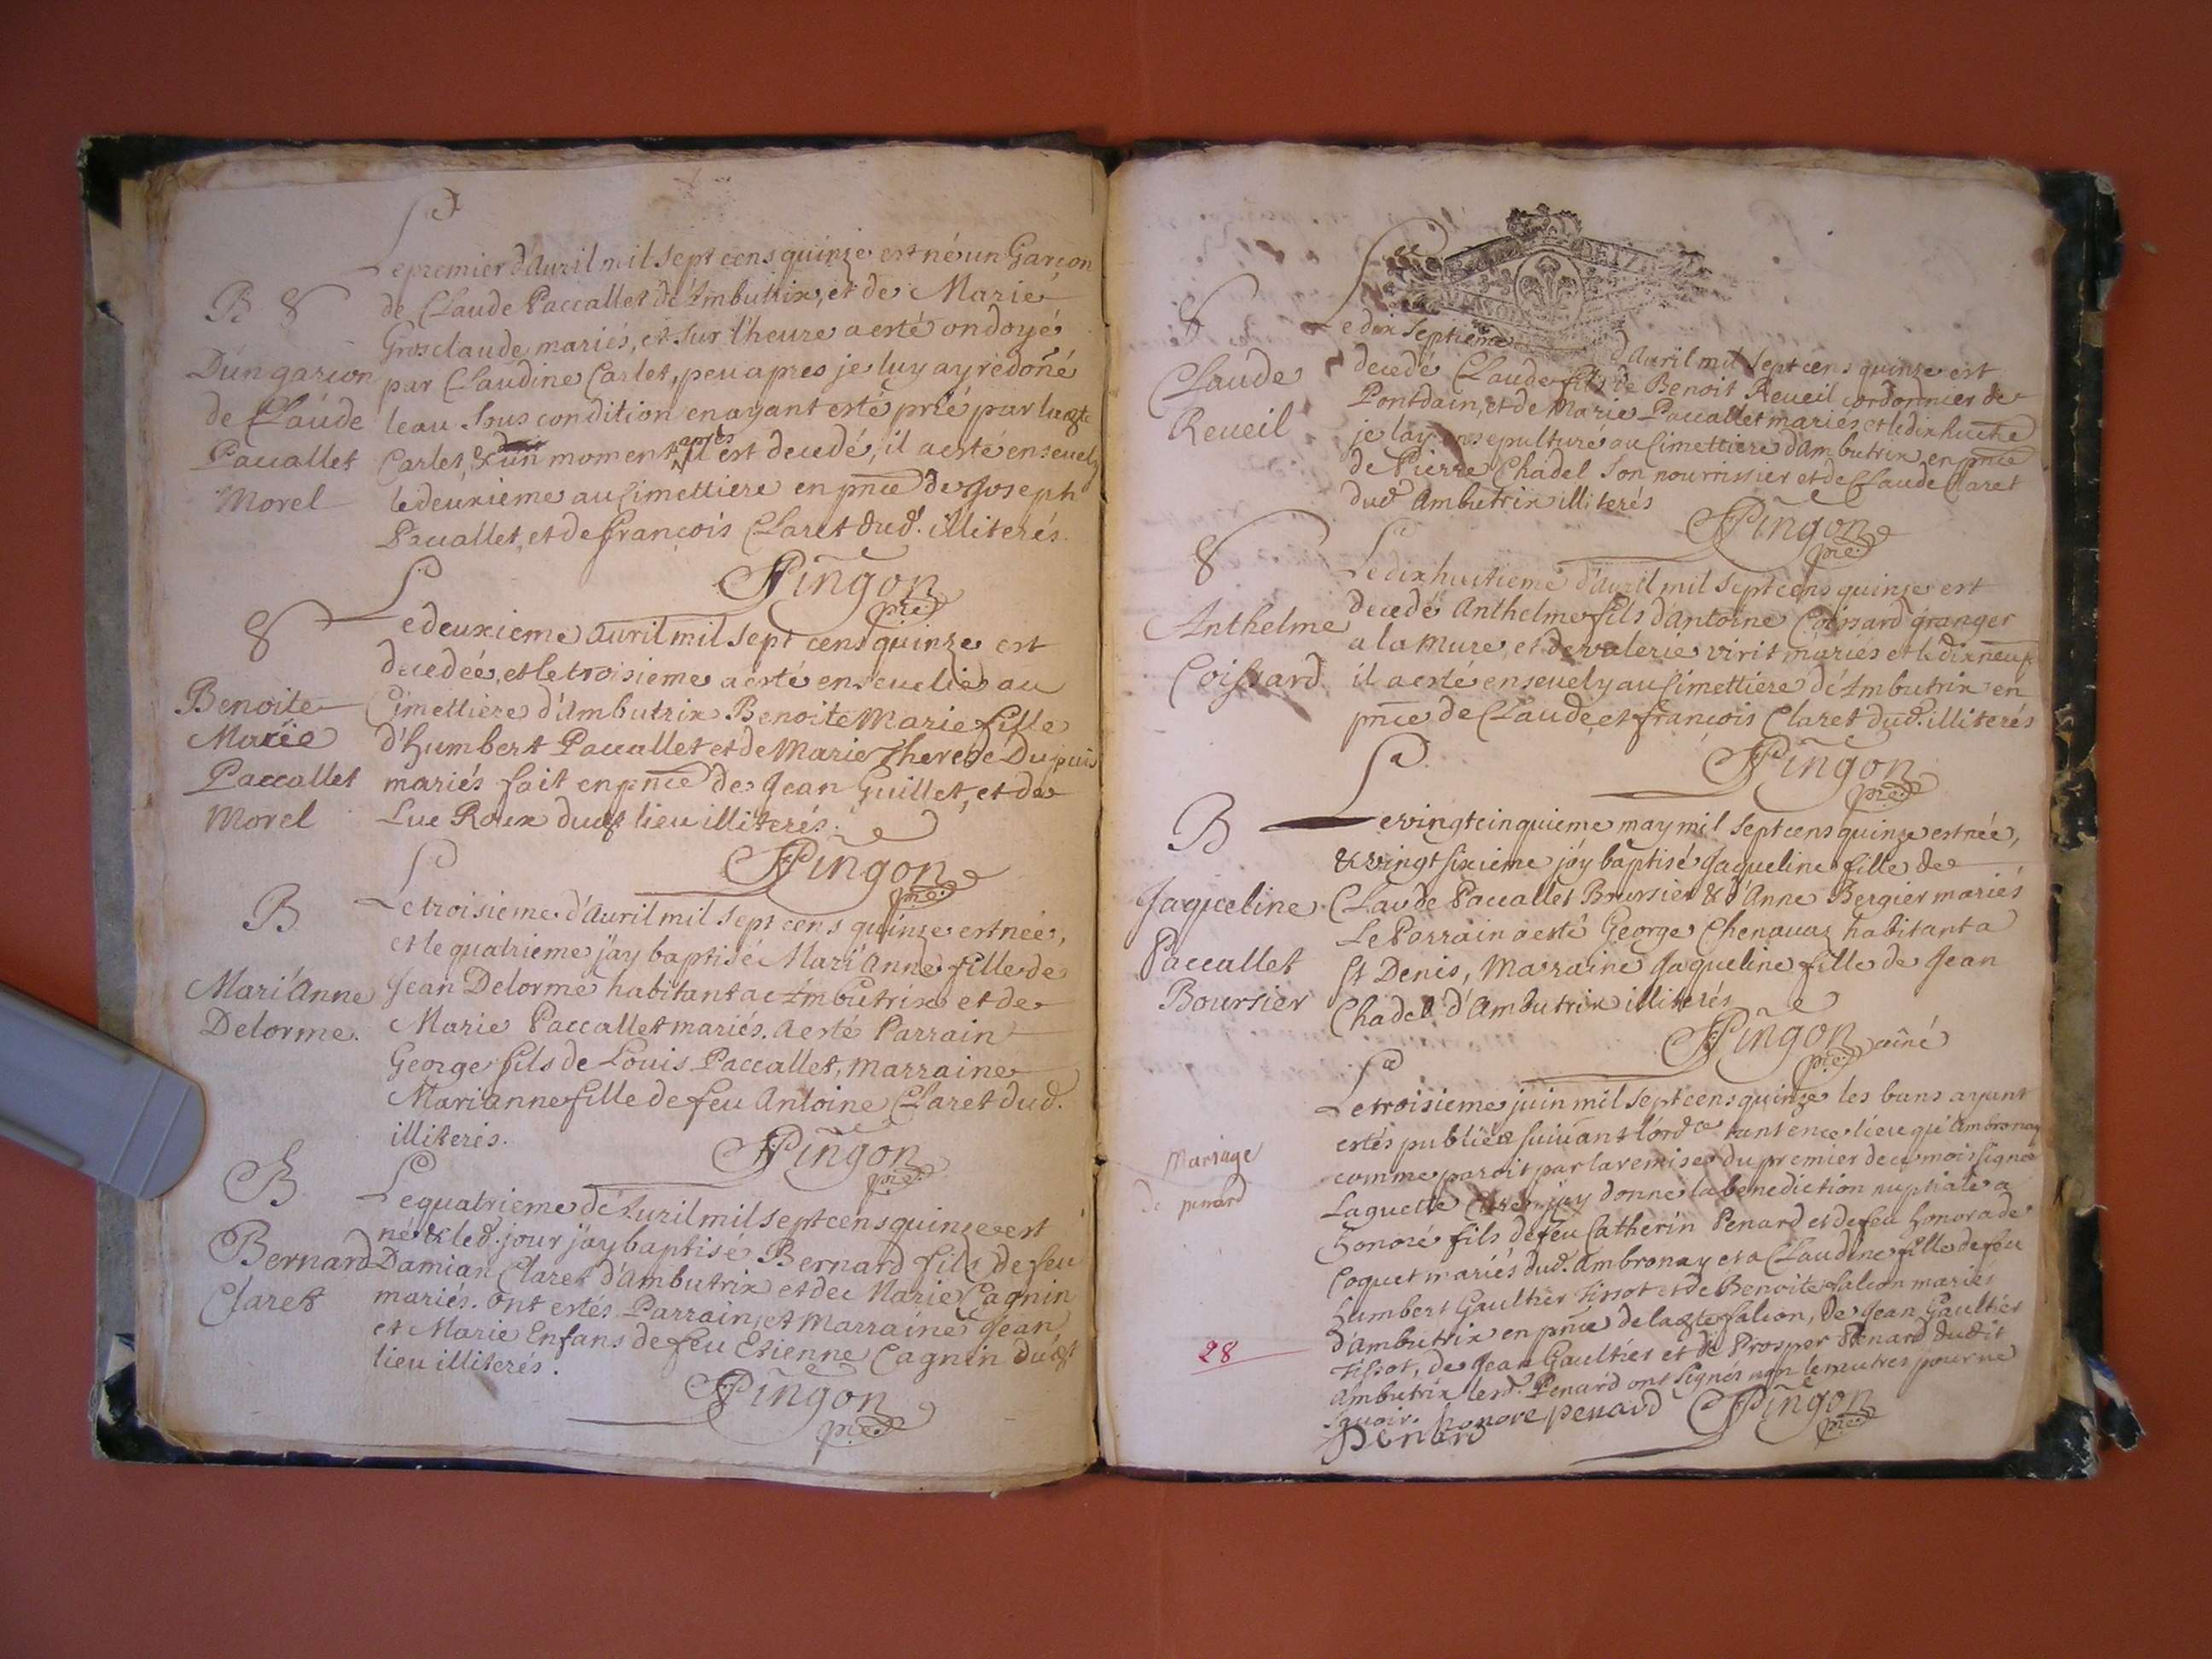 B 8
D'un garçon
de Claude
Paccallet
Morel
Le premier d'Auril mil sept cens quinze est né un Garçon
de Claude Paccallet d'Ambutrix, et de Marie
Grosclaude mariés, et sur l'heure a esté ondoyé
par Claudine Carlet, peu apres je luy ay redoñé
leau sous condition en ayant esté prié par lad.te
Carlet, & un moment apres il est decedé, il a esté enseuely
le deuxieme au Cimettiere en pnce de Joseph
Paccallet, et de François Claret dud. illiterés.
Pingon
pre.
8
Benoite
Marie
Paccallet
Morel
Le deuxieme auril mil sept cens quinze est
decedée, et le troisieme a esté enseuelie au
Cimettiere d'Ambutrix Benoite Marie fille
d'humbert Paccallet et de Marie Therese Dupuis
mariés fait en pnce de Jean Guillet, et de
Luc Roux dud. lieu illiterés.
Pingon
pre.
B
Mari'Anne
Delorme.
Le troisieme d'Auril mil sept cens quinze est née,
et le quatrieme j'ay baptisé Mari'Anne fille de
Jean Delorme habitant a Ambutrix et de
Marie Paccallet mariés. a esté Parrain
George fils de Louis Paccallet, marraine
Marianne fille de feu Antoine Claret dud.
illiterés.
Pingon
pre.
B
Bernard
Claret
Le quatrieme d'Auril mil sept cens quinze est
né & led. jour j'ay baptisé Bernard fils de feu
Damian Claret d'Ambutrix et de Marie Cagnin
mariés. ont estés Parrain, et Marraine Jean
et Marie Enfans de feu Etienne Cagnin dud.
lieu illiterés.
Pingon
pre.
8
Claude
Reueil
Le dix septieme d'Auril mil sept cens quinze est
decedé Claude fils de Benoit Reueil cordonnier de
Pontdain, et de Marie Paccallet mariés et le dix huit.e
je lay ensepulturé au Cimettiere d'Ambutrix en pnce
de Pierre Chadel son nourrissier et de Claude Claret
dud. Ambutrix illiterés
Pingon
pre.
8
Anthelme
Coissard
Le dix huitieme d'Auril mil sept cens quinze est
decedé Anthelme fils d'Antoine Coissard granger
a la Mure, et de valerie virit mariés et le dix neuf
il a esté enseuely au Cimettiere d'Ambutrix en
pnce de Claude, et françois Claret dud. illiterés
Pingon
pre.
B
Jaqueline
Paccallet
Boursier
Le vingt cinquieme may mil sept cens quinze est née,
& vingt sixieme j'ay baptisé Jaqueline fille de
Claude Paccallet Boursier & d'Anne Bergier mariés
Le Parrain a esté George Chenauaz habitant a
St Denis, Marraine Jaqueline fille de Jean
Chadel d'Ambutrix illiterés
Pingon ainé
pre.
Mariage
de penard
28
Le troisieme juin mil sept cens quinze les bans ayant
estés publiés suiuant l'ord.ce tant en ce lieu qu'Ambronay
comme paroit par la remise du premier de ce mois signé
Laguette j'ay donné la benediction nuptiale a
honoré fils de feu Catherin Penard et de feu honorade
Coquet mariés dud. Ambronay et a Claudine fille de feu
humbert Gaultier Tissot et de Benoite falcon mariés
d'Ambutrix en pnce de lad.te falcon, de Jean Gaultier
Tissot, de Jean Gaultier et de Prosper Penard dudit
Ambutrix lesd. Penard ont signés non les autres pour ne
sçauoir. honore penard Pingon
Penard pre.